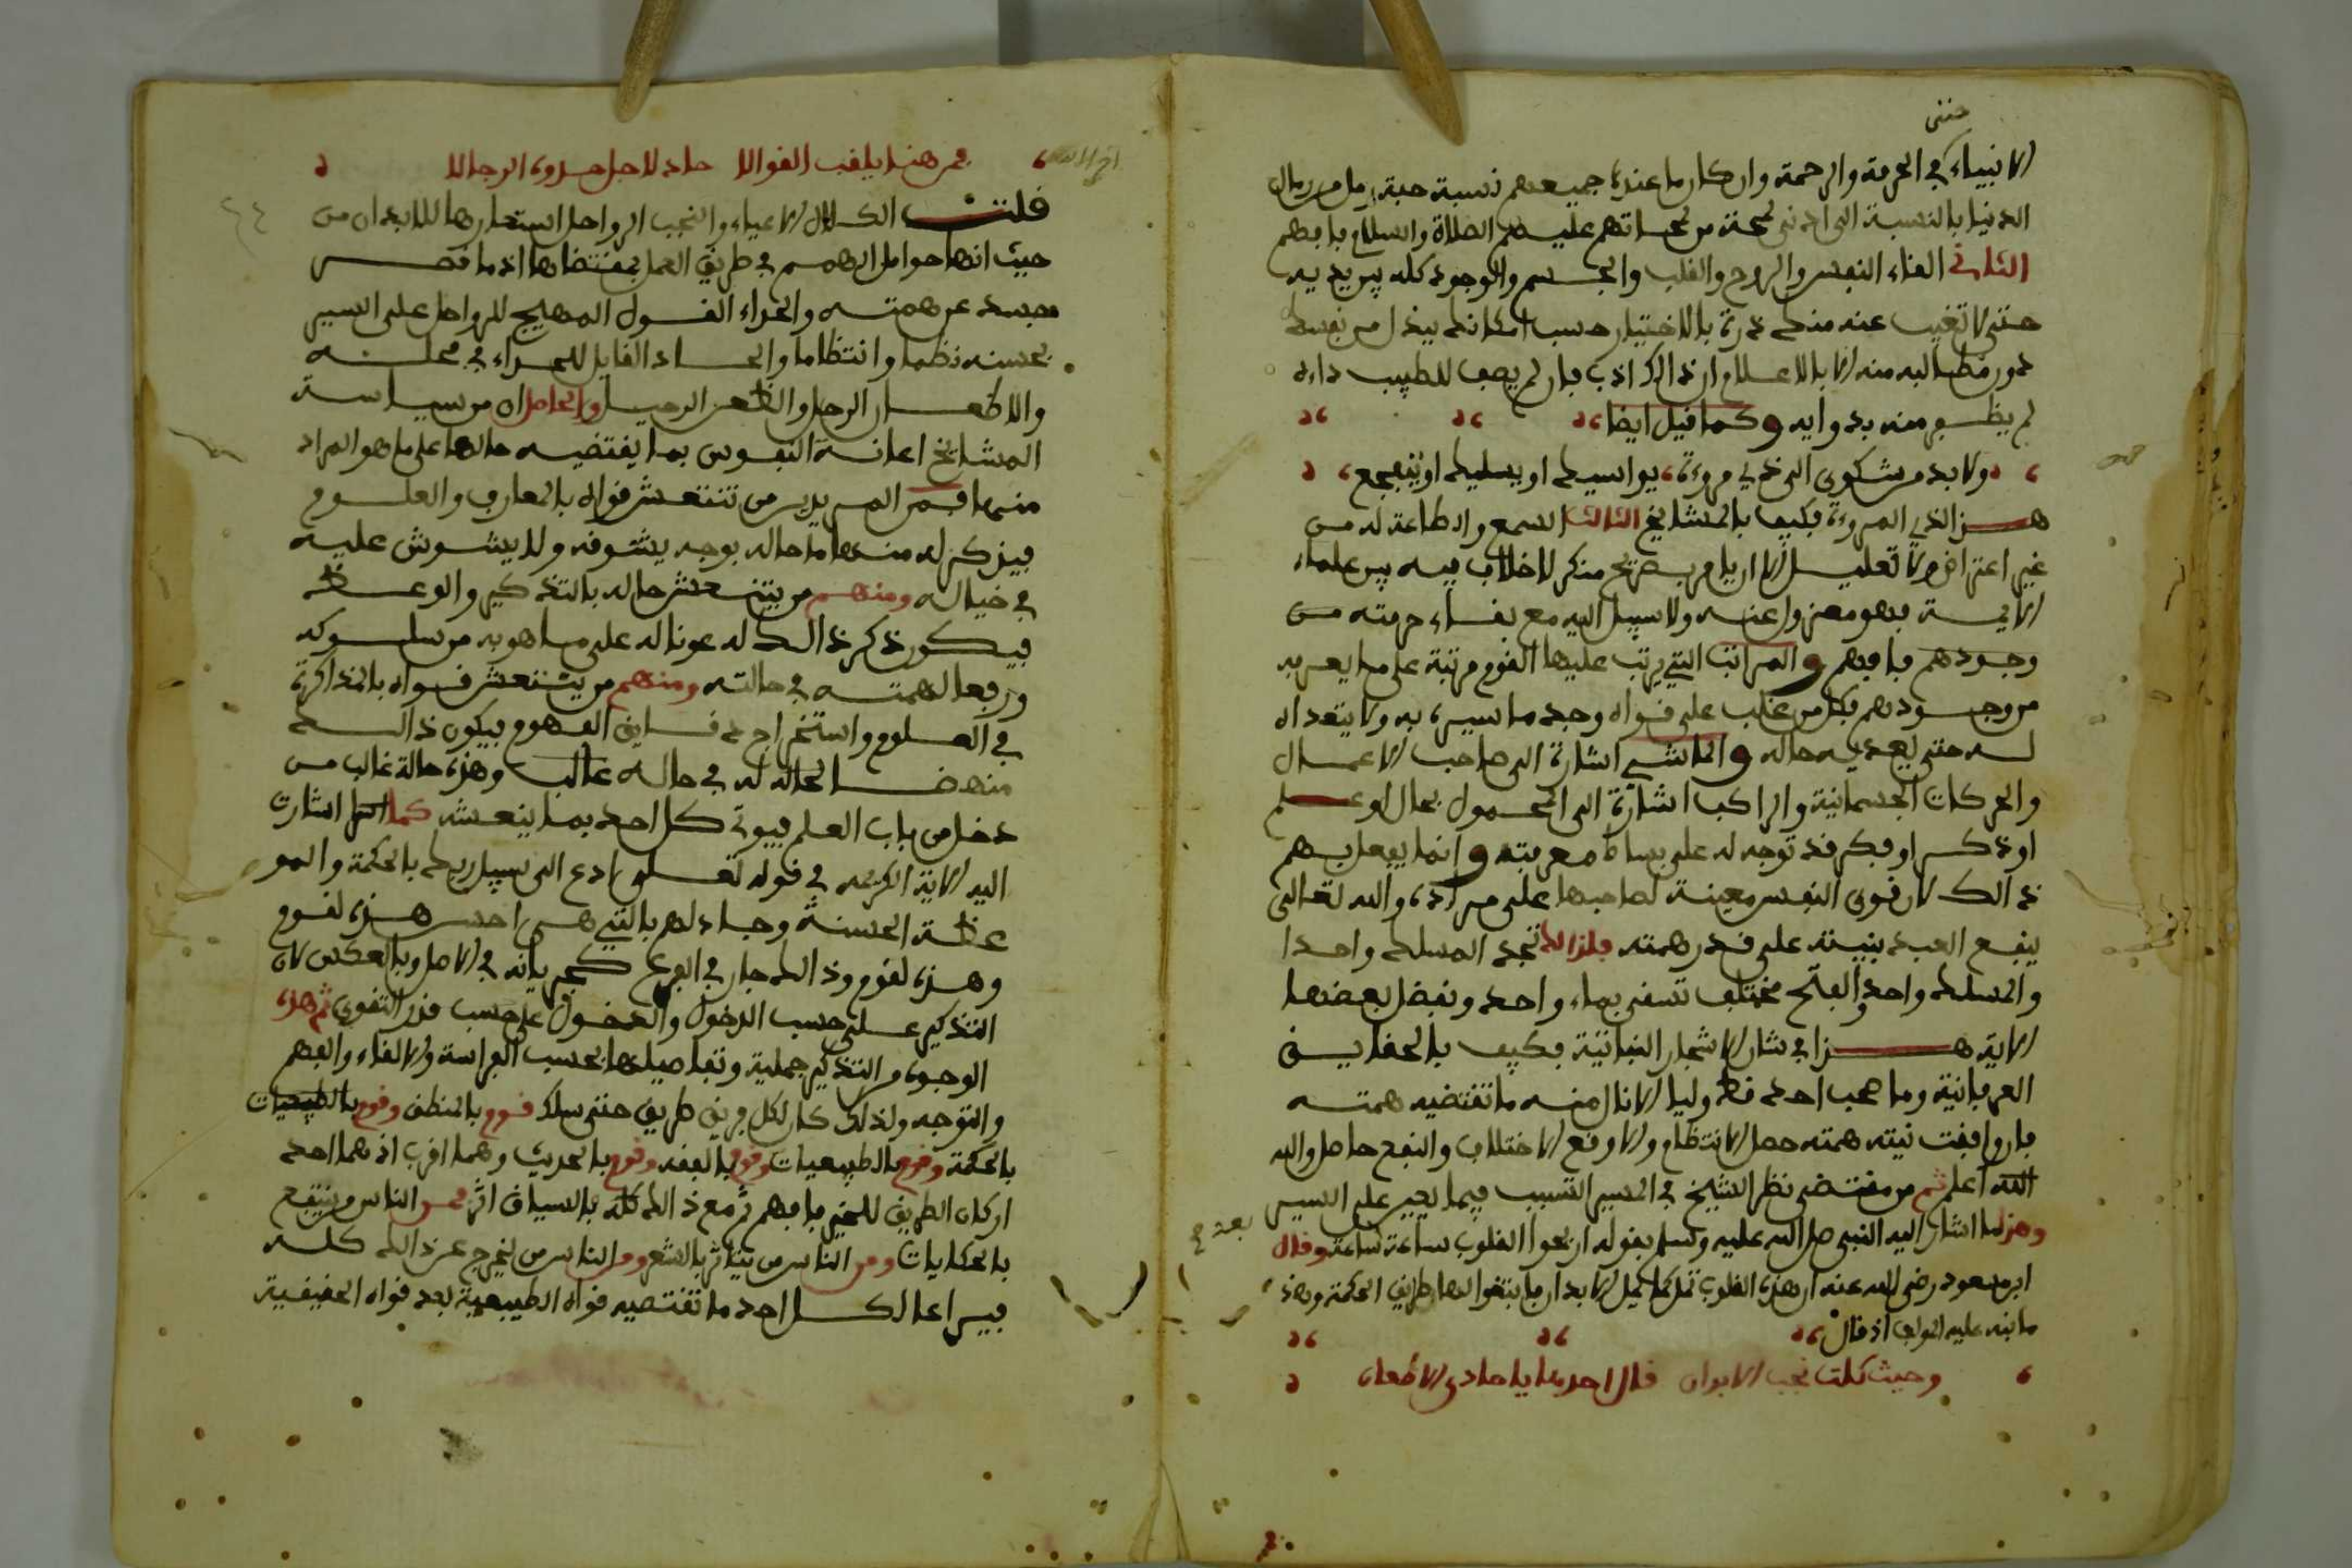 حتى
الانبياء في الحرمة والرحمة وان كان ما عند جميعهم نسبة حبة رمل من رمال
الدنيا بالنسبة الى ادنى لمحة من لمحاتهم عليهم الصلاة والسلام فافهم
الثاني القاء النفس والروح والقلب والجسم والوجود كله بين يديه
حتى لا تغيب عنه منك ذرة بالاختيار حسب امكانك ببذل من نفسك
دون مطالبه منه الا بالاعلام ان ذاك اذب فان لم يصف للطبيب داءه
لم يظفر منه بدوايه وكما قيل ايضا
ولا بد من شكوى الى ذي مروءة يواسيك او يسليك او يتفجع
هذا لذي المروءة فكيف بالمشايخ الثالث السمع والطاعة له من
غير اعتراض ولا تعليل الا ان يامر بصريح منكر لا خلاف فيه بين علماء
الايمة فهو معزول عنه ولا سبيل اليه مع بقاء حرمته من
وجودهم فافهم والمراتب التي يرتب عليها القوم مرتبة على ما يعم به
من وجودهم فكل من غلب على قواه وجد ما سير به ولا يتعداه
له حتى يعديه حاله والماشي اشارة الى صاحب الاعمال
والحركات الجسمانية والراكب اشارة الى المحمول بحال او علم
او ذكر او فكر قد توجه له على بساط معرفته وانما يفعل بهم
ذالك لان قوى النفس معينة لصاحبها على مراده والله تعالى
ينفع العبد بنيته على قدر همته فلذالك تجد المسلك واحدا
والمسلك واحد والفتح مختلف تسقى بماء واحد ونفضل بعضها
الاية هذا في شان الاشجار النباتية فكيف بالحقايق
العرفانية وما صحب احد قط وليا الا نال منه ما تقتضيه همته
فان وافقت نيته همته حصل الانتظام والا وقع الاختلاف والنفع حاصل والله
الله اعلم ثم من مقتضى نظر الشيخ في المسير التسبب فيما يعين على السير
وهذا ما اشار اليه النبي صلى الله عليه وسلم بقوله اريحوا القلوب ساعة ساعة وقال
ابن مسعود رضي الله عنه ان هذه القلوب تمل كما تمل الابدان فابتغوا لها طرايف الحكمة وهذ
ما نبه عليه المولف اذ قال
وحيث كلت نجب الابدان قال احديها يا حادي الاظعان
فمن هنا يلقب القوال حاد لاجل حدوه الرجال
قلت الكلال الاعياء والنجب الرواحل استعارها للابدان من
حيث انها حوامل الهمم في طريق العمل بمقتضاها اذ ما قصر
جسد عن همته والحداء القول المهيج للرواحل على السير
بحسنه نظما وانتظاما والحاد القايل للحداء في محله
والاظعان الرحل والظعن الرحيل والحاصل ان من سياسة
المشايخ اعانة النفوس بما يقتضيه حالها على ما هو المراد
منها فمن المريدين من تنتعش قواه بالمعارف والعلوم
فيذكر له منها ما حاله بوجه يشوقه ولا يشوش عليه
في خياله ومنهم من ينتعش حاله بالتذكير والوعظ
فيكون ذكر ذالك له عونا له على ما هو به من سلوكه
ورفعا لهمته في حالته ومنهم من ينتعش قواه بالمذاكرة
في العلوم واستخراج دقايق الفهوم فيكون ذالك
منهضا لحاله له في حاله غالب وهذه حالة غالب من
دخل من باب العلم فيوتى كل احد بما ينعشه كما اشارت
اليه الاية الكريمة في قوله تعلى ادع الى سبيل ربك بالحكمة والمو
عظة الحسنة وجادلهم بالتي هي احسن هذه لقوم
وهذه لقوم وذالك جار في الفرع كجريانه في الاصل وبالعكس لان
التذكير على حسب الدخول والدخول على حسب قدر التقوى ثم هذه
الوجوه من التذكير جملية وتفاصيلها بحسب الفراسة والالقاء والفهم
والتوجه ولذلك كان لكل فريق طريق حتى سلك قوم بالمنطق وقوم بالطبيعيات
بالحكمة وقوم بالطبيعيات وقوم بالفقه وقوم بالحديث وهما اقرب اذ هما احد
اركان الطريق للخير فافهم ثم مع ذالك كله فالسياق اثر فمن الناس من ينتفع
بالحكايات ومن الناس من يتاثر بالشعر ومن الناس من يخرج عن ذالك كله
فيراعا لكل احد ما تقتضيه قواه الطبيعية بعد قواه الحقيقية